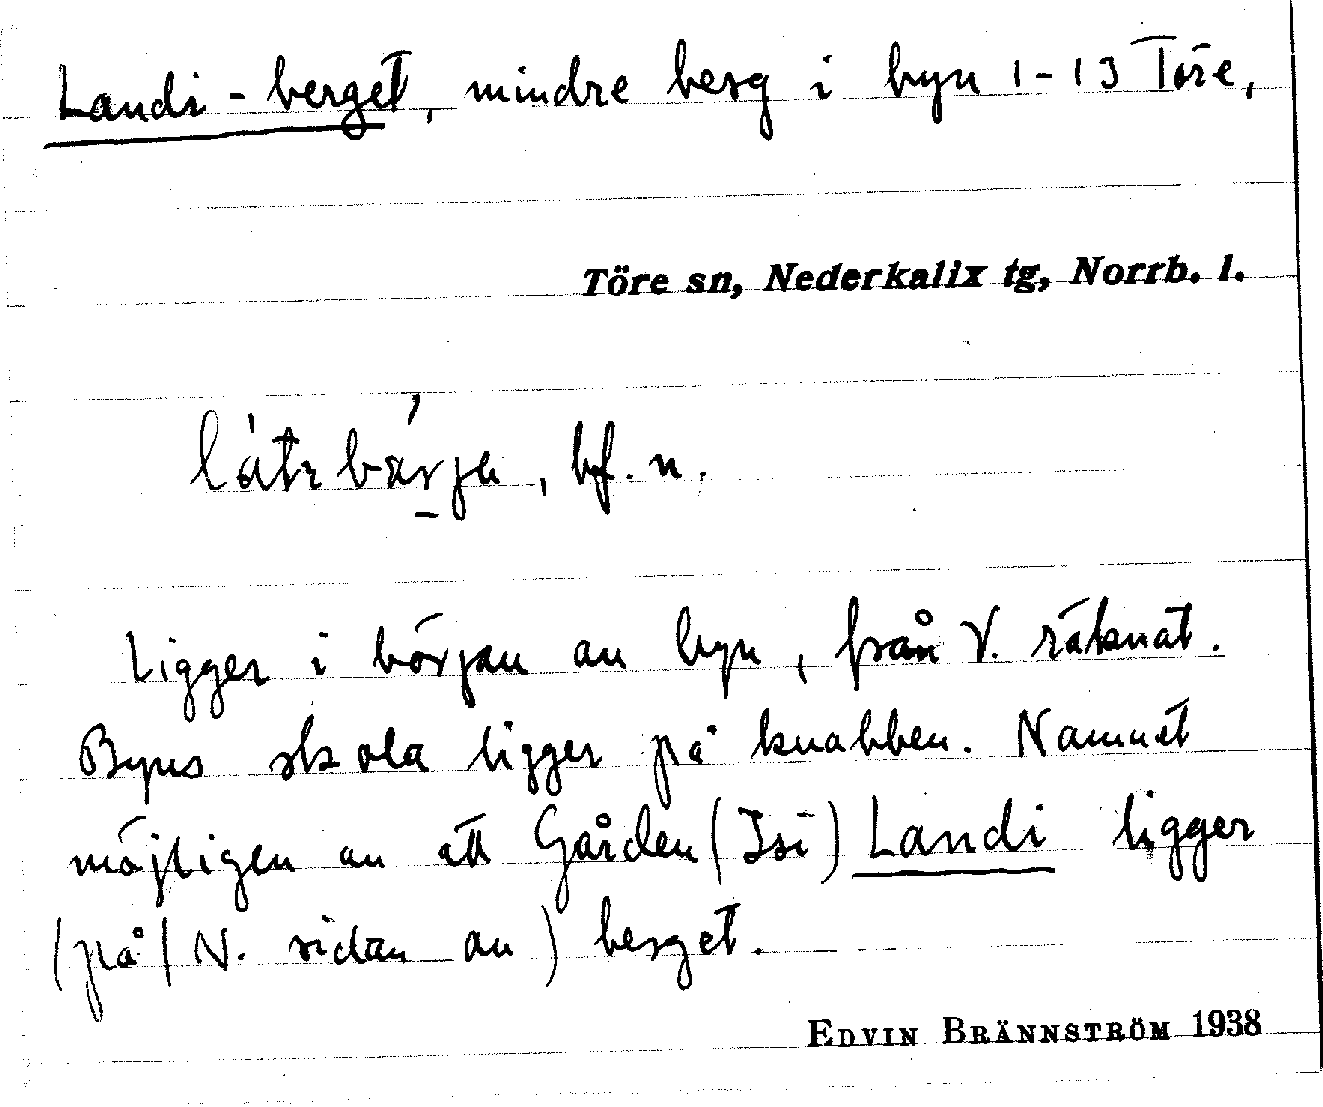 Landi-berget, mindre berg i byn 1-13 Töre,
Töre sn, Nederkalix tg, Norrb. l.
bf. n.
Ligger i början av byn, från V. räknat.
Byns skola ligger på knabben. Namnet
möjligen av att Gården (Isi) Landi ligger
(på/N. sidan av) berget.
EDVIN BRÄNNSTRÖM 1938